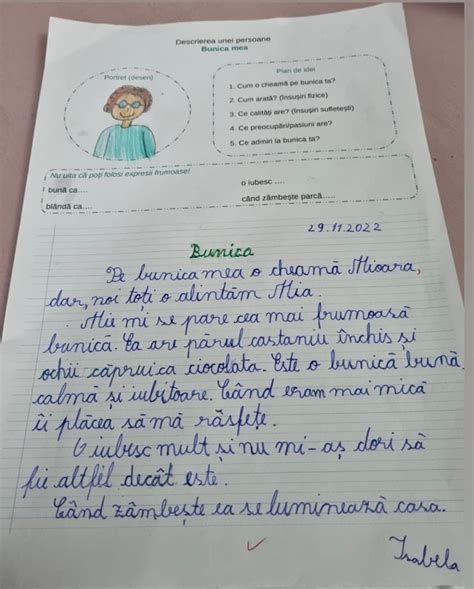 Descrierea unei persoane
Bunica mea
Portret (desen)
Plan de idei
1. Cum o cheamă pe bunica ta?
2. Cum arată? (însușiri fizice)
3. Ce calități are? (însușiri sufletești)
4. Ce preocupări/pasiuni are?
5. Ce admiri la bunica ta?
Nu uita că poți folosi expresii frumoase!
bună ca....
o iubesc ....
blândă ca....
când zâmbește parcă.....
29.11.2022
Bunica
Pe bunica mea o cheamă Mioara,
dar, noi toți o alintăm Mia.
Mie mi se pare cea mai frumoasă
bunică. Ea are părul castaniu închis și
ochii căprui ca ciocolata. Este o bunică bună,
calmă și iubitoare. Când eram mai mică
îi plăcea să mă răsfețe.
O iubesc mult și nu mi-aș dori să
fie altfel decât este.
Când zâmbește ea se luminează casa.
Isabela